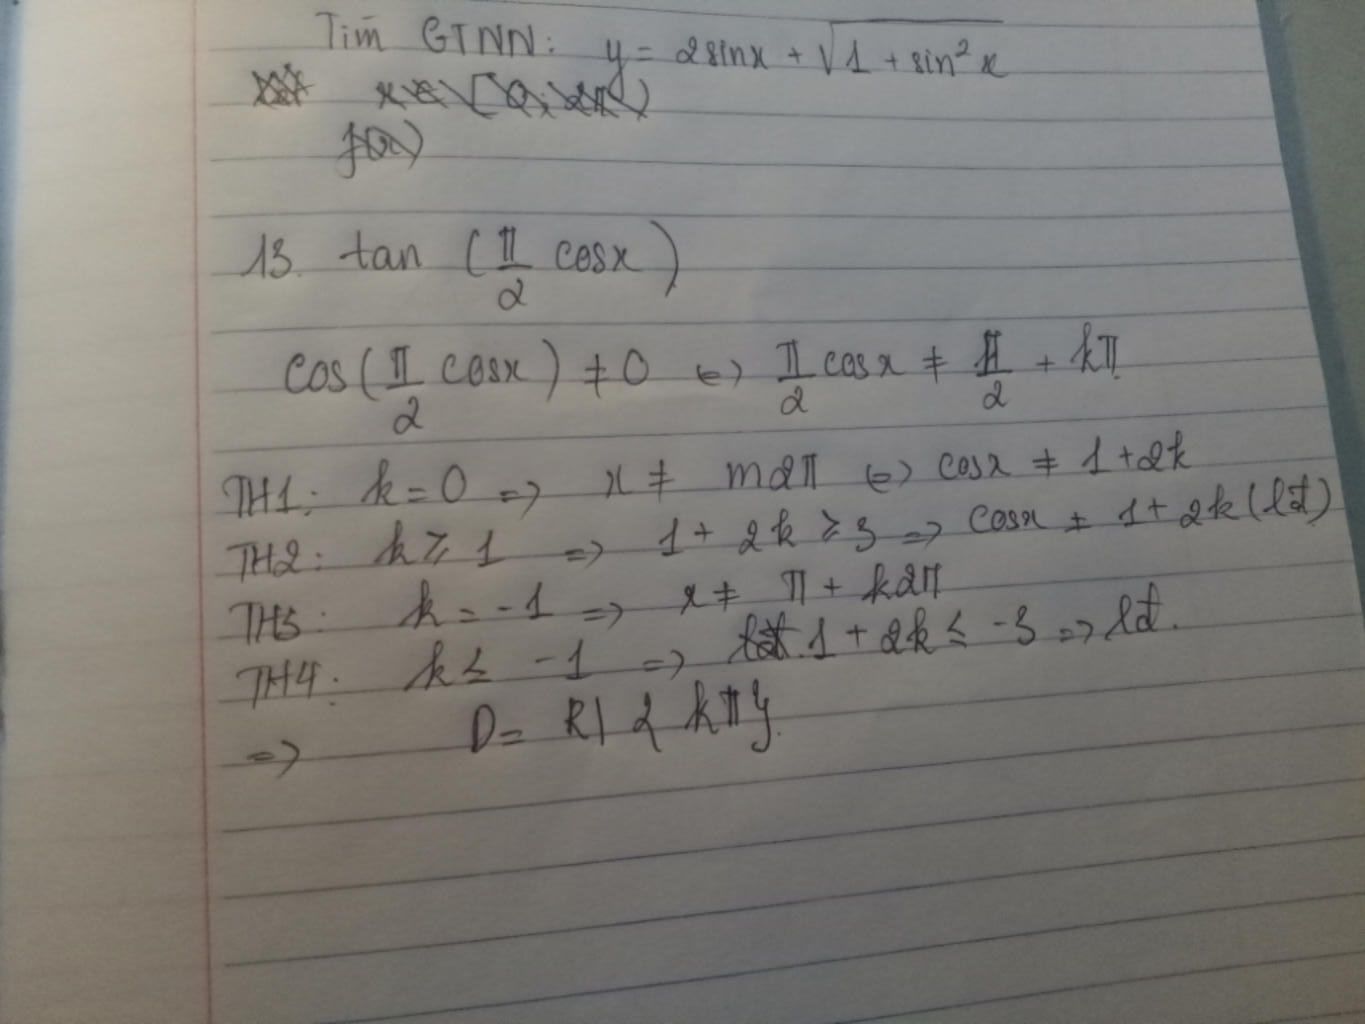 Tìm GTNN: y = 2sinx + √(1 + sin²x)
x ∈ [0; 2π)
f(x)
13. tan (π/2 cosx)
cos(π/2 cosx) ≠ 0 ⇔ π/2 cosx ≠ π/2 + kπ
TH1: k = 0 => x ≠ m2π ⇔ cosx ≠ 1+2k
TH2: k ≥ 1 => 1 + 2k ≥ 3 => cosx ≠ 1+2k (lđ)
TH3: k = -1 => x ≠ π + k2π
TH4: k ≤ -1 => 1 + 2k ≤ -3 => lđ.
=> D = R\{kπ}.